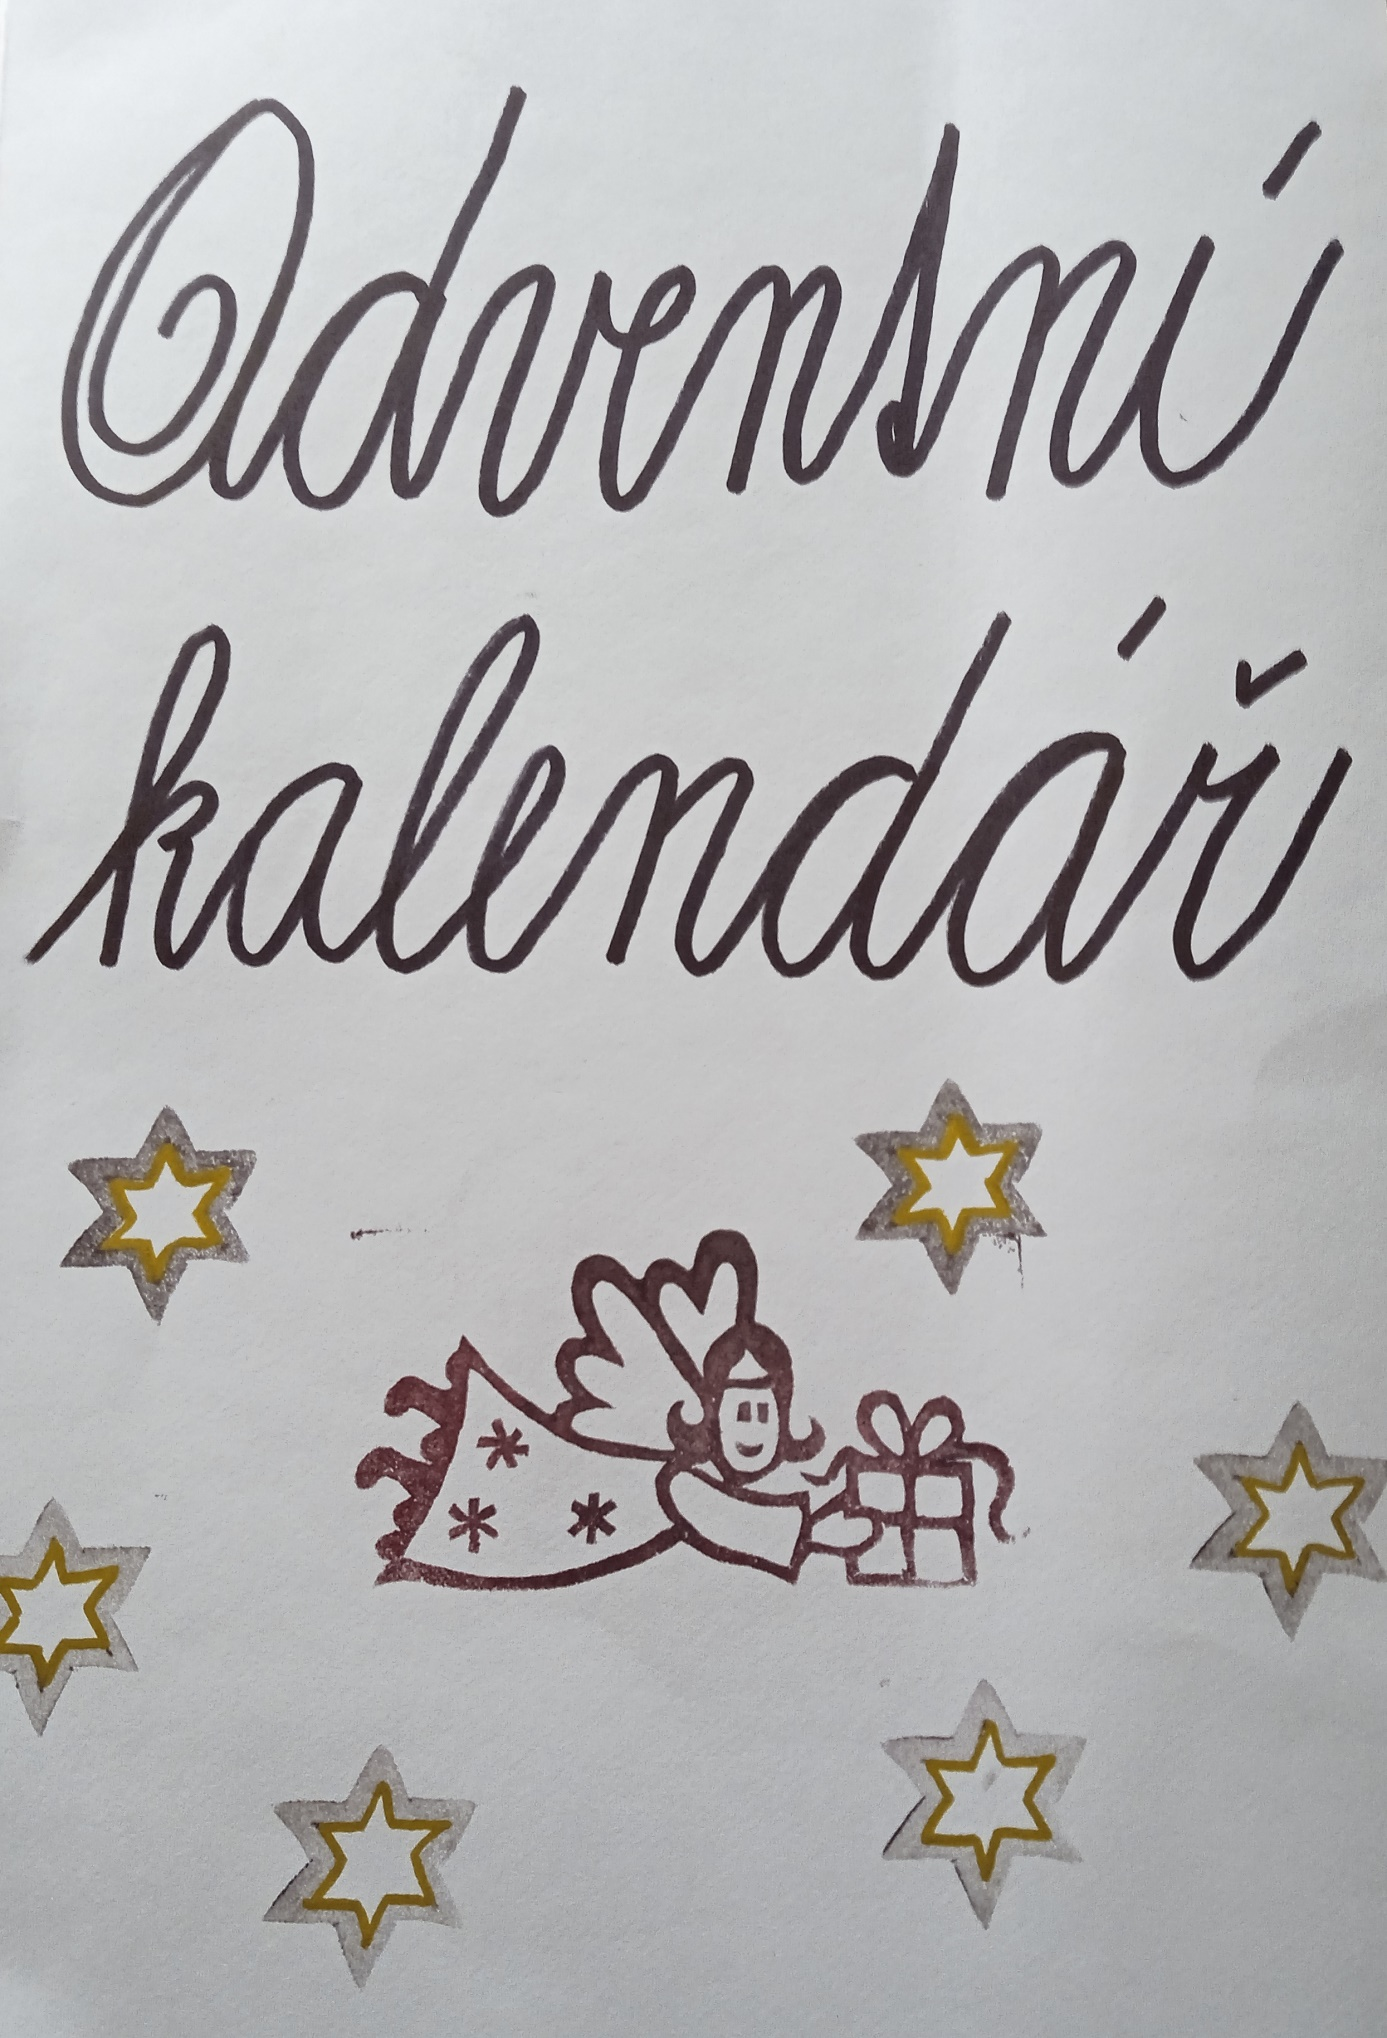 Adventní
kalendář